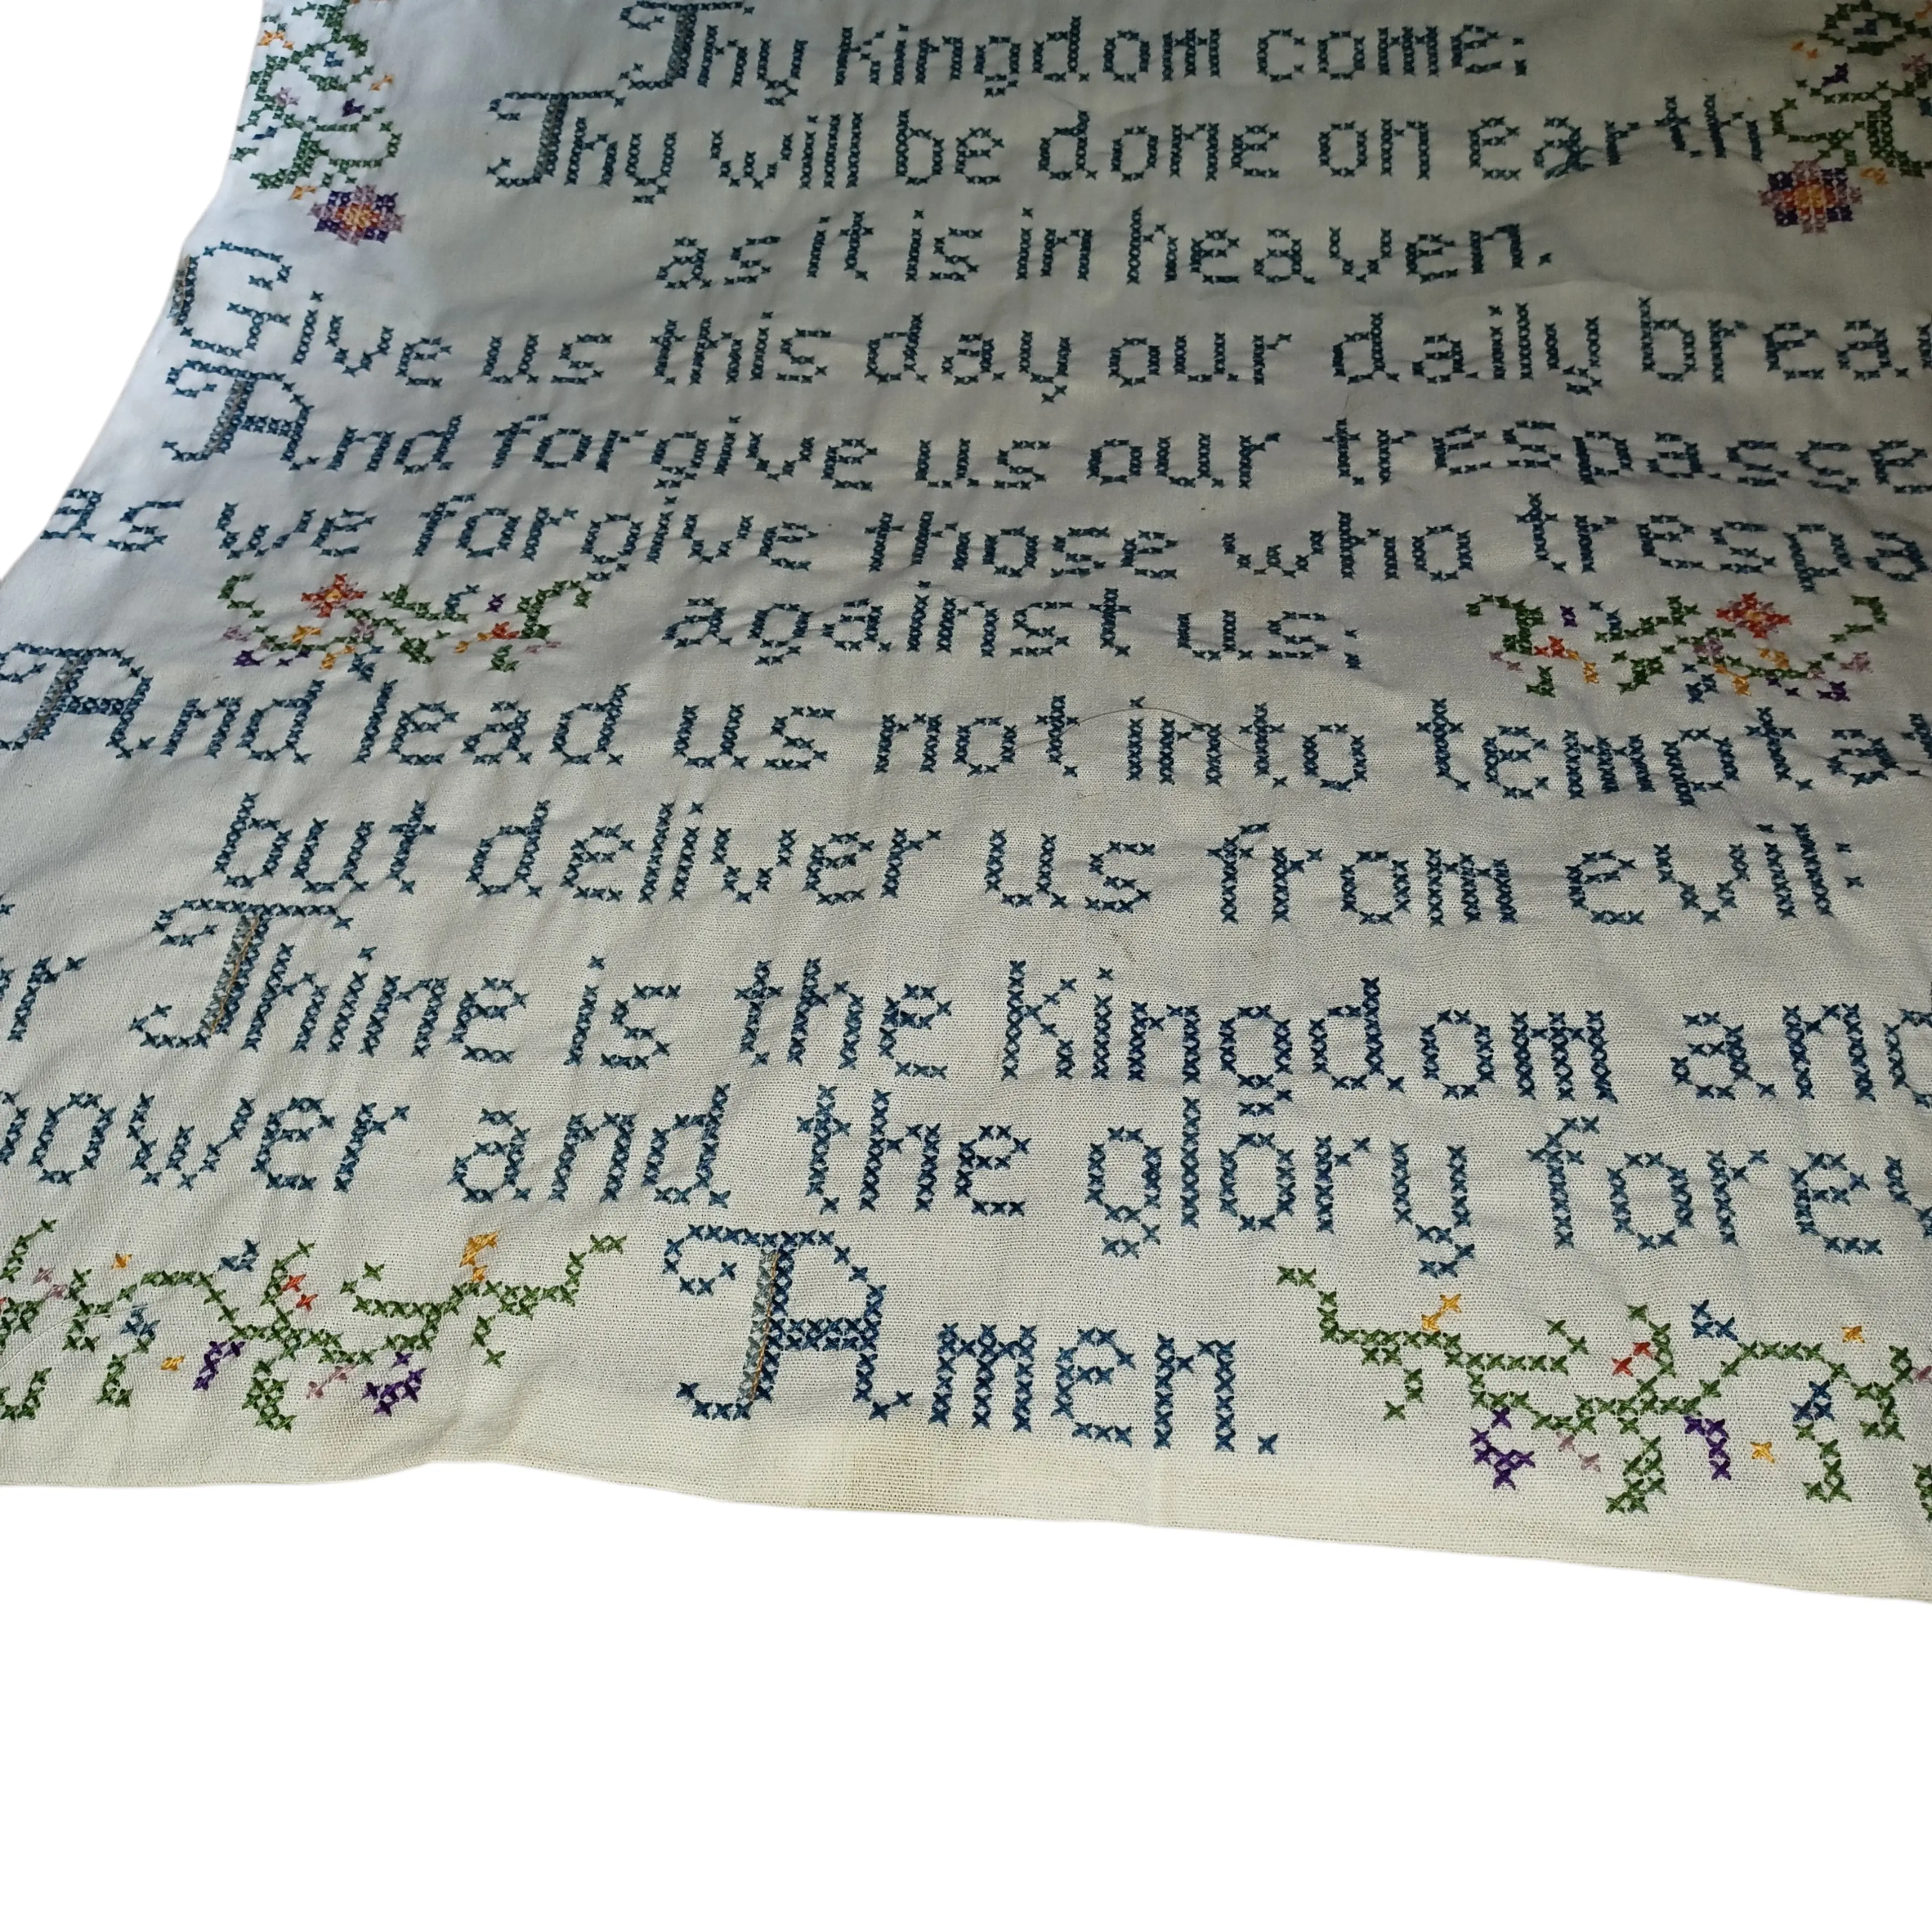 Thy kingdom come;
Thy will be done on earth
as it is in heaven.
Give us this day our daily brea
And forgive us our trespasse
as we forgive those who trespa
against us;
And lead us not into temptat
but deliver us from evil;
r Thine is the kingdom and
power and the glory forev
Amen.